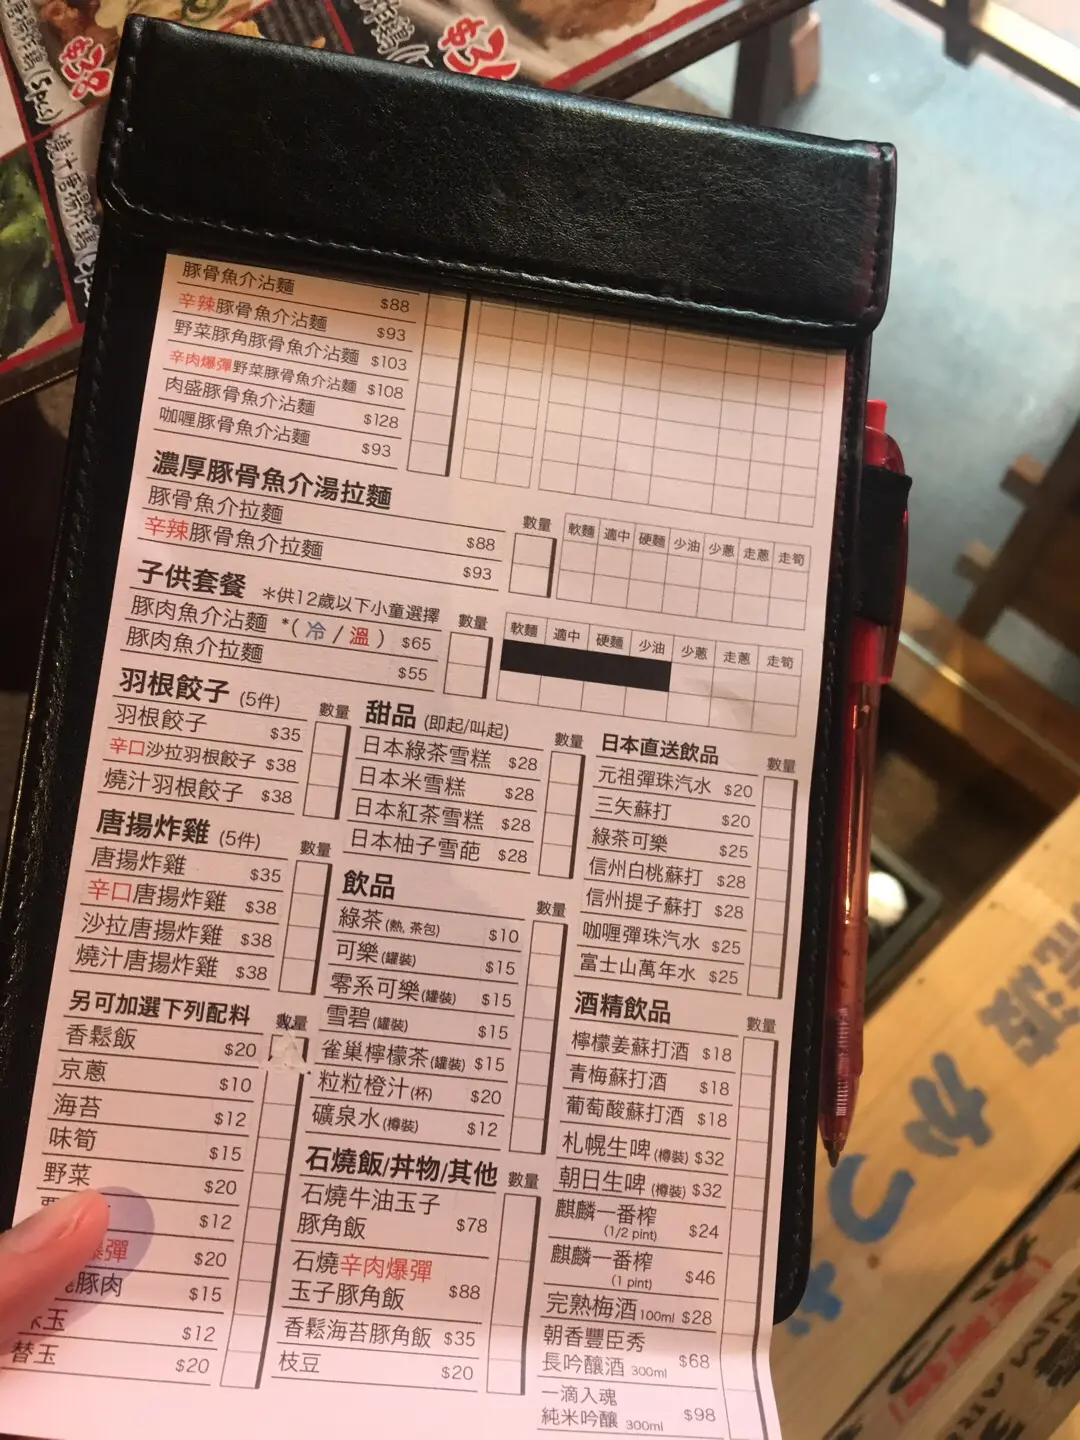 豚骨魚介沾麵 $88
辛辣豚骨魚介沾麵 $93
野菜豚角豚骨魚介沾麵 $103
辛肉爆彈野菜豚骨魚介沾麵 $108
肉盛豚骨魚介沾麵 $128
咖喱豚骨魚介沾麵 $93
濃厚豚骨魚介湯拉麵
數量 軟麵 適中 硬麵 少油 少蔥 走蔥 走筍
豚骨魚介拉麵 $88
辛辣豚骨魚介拉麵 $93
子供套餐 *供12歲以下小童選擇
數量 軟麵 適中 硬麵 少油 少蔥 走蔥 走筍
豚肉魚介沾麵 *(冷/溫) $65
豚肉魚介拉麵 $55
羽根餃子 (5件) 數量
羽根餃子 $35
辛口沙拉羽根餃子 $38
燒汁羽根餃子 $38
唐揚炸雞 (5件) 數量
唐揚炸雞 $35
辛口唐揚炸雞 $38
沙拉唐揚炸雞 $38
燒汁唐揚炸雞 $38
另可加選下列配料 數量
香鬆飯 $20
京蔥 $10
海苔 $12
味筍 $15
野菜 $20
$12
爆彈 $20
豚肉 $15
玉 $12
替玉 $20
甜品 (即起/叫起) 數量
日本綠茶雪糕 $28
日本米雪糕 $28
日本紅茶雪糕 $28
日本柚子雪葩 $28
飲品 數量
綠茶(熱, 茶包) $10
可樂(罐裝) $15
零系可樂(罐裝) $15
雪碧(罐裝) $15
雀巢檸檬茶(罐裝) $15
粒粒橙汁(杯) $20
礦泉水(樽裝) $12
石燒飯/丼物/其他 數量
石燒牛油玉子
豚角飯 $78
石燒辛肉爆彈
玉子豚角飯 $88
香鬆海苔豚角飯 $35
枝豆 $20
日本直送飲品 數量
元祖彈珠汽水 $20
三矢蘇打 $20
綠茶可樂 $25
信州白桃蘇打 $28
信州提子蘇打 $28
咖喱彈珠汽水 $25
富士山萬年水 $25
酒精飲品 數量
檸檬姜蘇打酒 $18
青梅蘇打酒 $18
葡萄酸蘇打酒 $18
札幌生啤(樽裝) $32
朝日生啤(樽裝) $32
麒麟一番榨
(1/2 pint) $24
麒麟一番榨
(1 pint) $46
完熟梅酒100ml $28
朝香豐臣秀
長吟釀酒 300ml $68
一滴入魂
純米吟釀 300ml $98